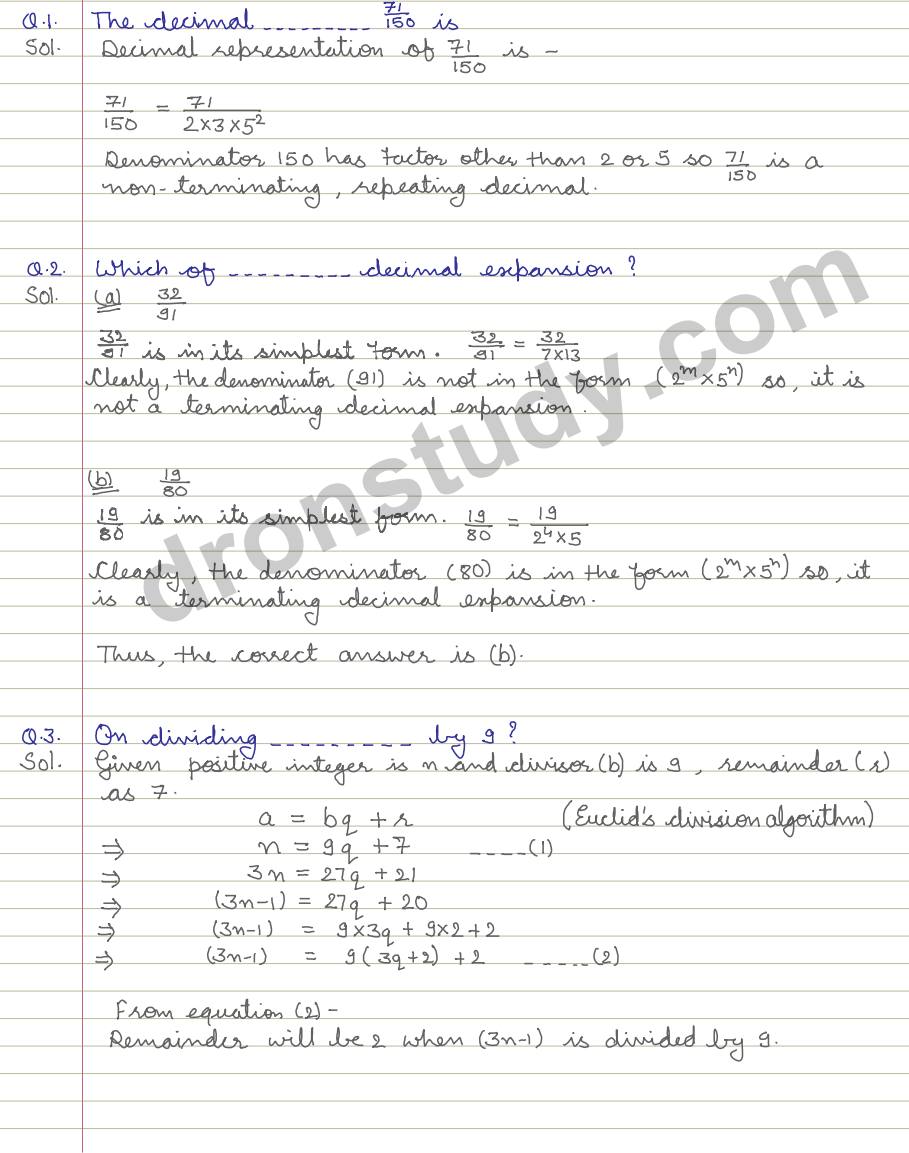 Q.1. The decimal --------- 71/150 is
Sol. Decimal representation of 71/150 is -
71/150 = 71/(2×3×5²)
Denominator 150 has factor other than 2 or 5 so 71/150 is a
non-terminating, repeating decimal.
Q.2. Which of --------- decimal expansion ?
Sol. (a) 32/91
32/91 is in its simplest form. 32/91 = 32/(7×13)
Clearly, the denominator (91) is not in the form (2ᵐ×5ⁿ) so, it is
not a terminating decimal expansion.
(b) 19/80
19/80 is in its simplest form. 19/80 = 19/(2⁴×5)
Clearly, the denominator (80) is in the form (2ᵐ×5ⁿ) so, it
is a terminating decimal expansion.
Thus, the correct answer is (b).
Q.3. On dividing ---------- by 9 ?
Sol. Given positive integer is n and divisor (b) is 9, remainder (r)
as 7.
a = bq + r (Euclid's division algorithm)
⇒ n = 9q + 7 ----(1)
⇒ 3n = 27q + 21
⇒ (3n-1) = 27q + 20
⇒ (3n-1) = 9×3q + 9×2+2
⇒ (3n-1) = 9(3q+2) +2 -----(2)
From equation (2) -
Remainder will be 2 when (3n-1) is divided by 9.
dronstudy.com